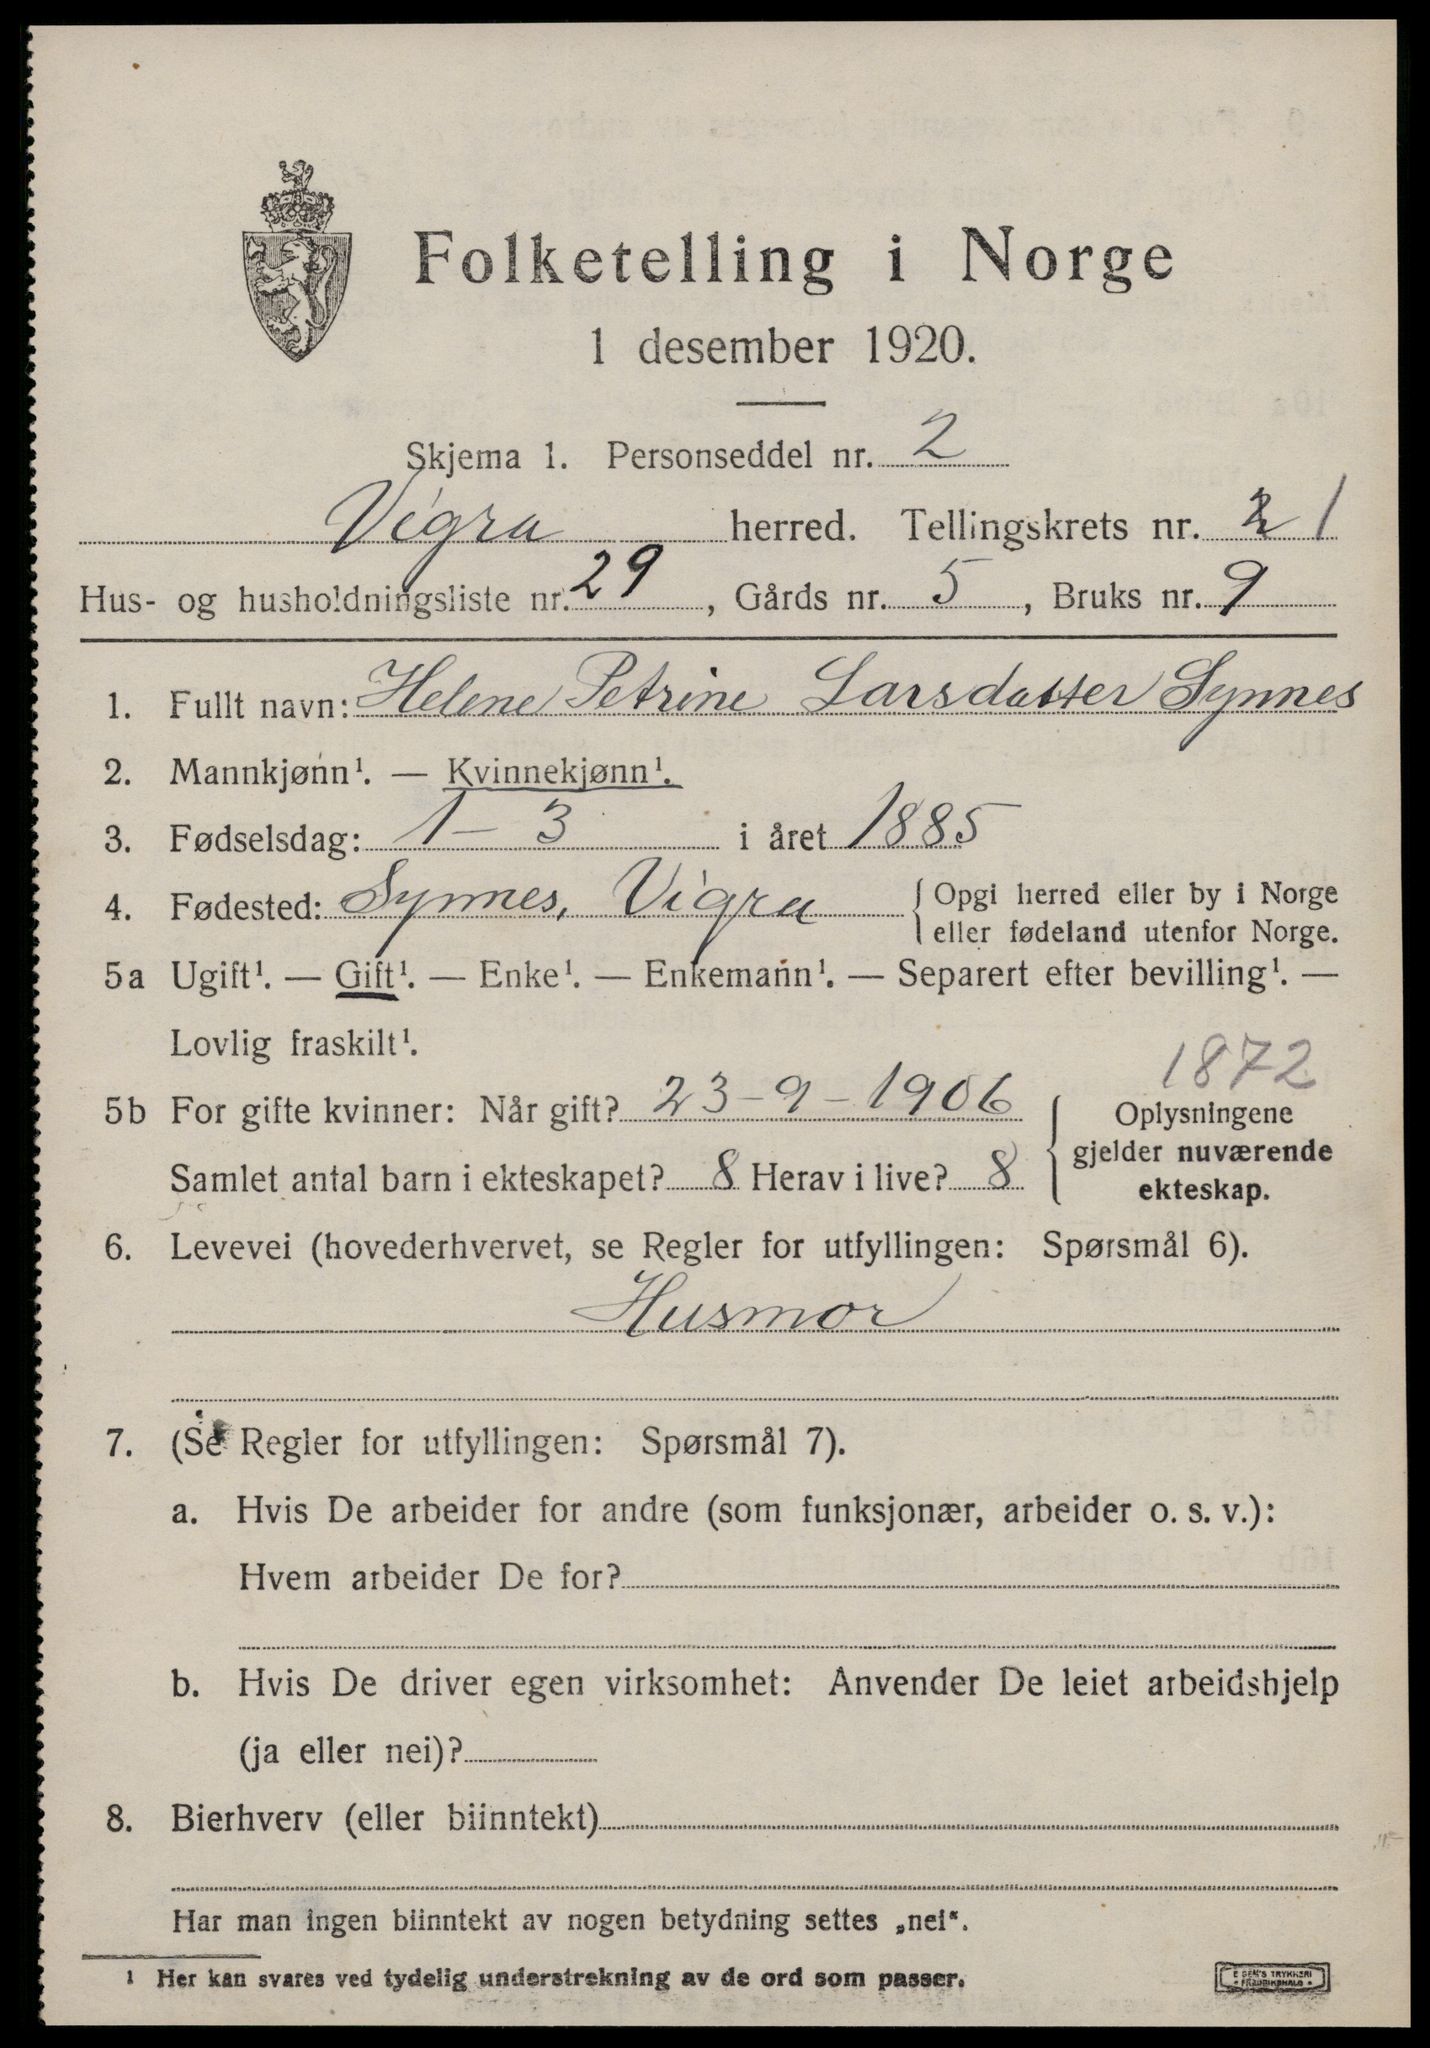 Folketelling i Norge
1 desember 1920.
Skjema 1. Personseddel nr. 2
Vigra herred. Tellingskrets nr. 2 1
Hus- og husholdningsliste nr. 29, Gårds nr. 5, Bruks nr. 9
1. Fullt navn: Helene Petrine Larsdatter Synnes
2. Mannkjønn¹. — Kvinnekjønn¹.
3. Fødselsdag: 1 - 3 i året 1885
4. Fødested: Synnes, Vigra { Opgi herred eller by i Norge
eller fødeland utenfor Norge.
5a Ugift¹. — Gift¹. — Enke¹. — Enkemann¹. — Separert efter bevilling¹. —
Lovlig fraskilt¹.
1872
5b For gifte kvinner: Når gift? 23-9-1906
Samlet antal barn i ekteskapet? 8 Herav i live? 8
Oplysningene
gjelder nuværende
ekteskap.
6. Levevei (hovederhvervet, se Regler for utfyllingen: Spørsmål 6).
Husmor
7. (Se Regler for utfyllingen: Spørsmål 7).
a. Hvis De arbeider for andre (som funksjonær, arbeider o. s. v.):
Hvem arbeider De for?
b. Hvis De driver egen virksomhet: Anvender De leiet arbeidshjelp
(ja eller nei)?
8. Bierhverv (eller biinntekt)
Har man ingen biinntekt av nogen betydning settes „nei“.
¹ Her kan svares ved tydelig understrekning av de ord som passer.